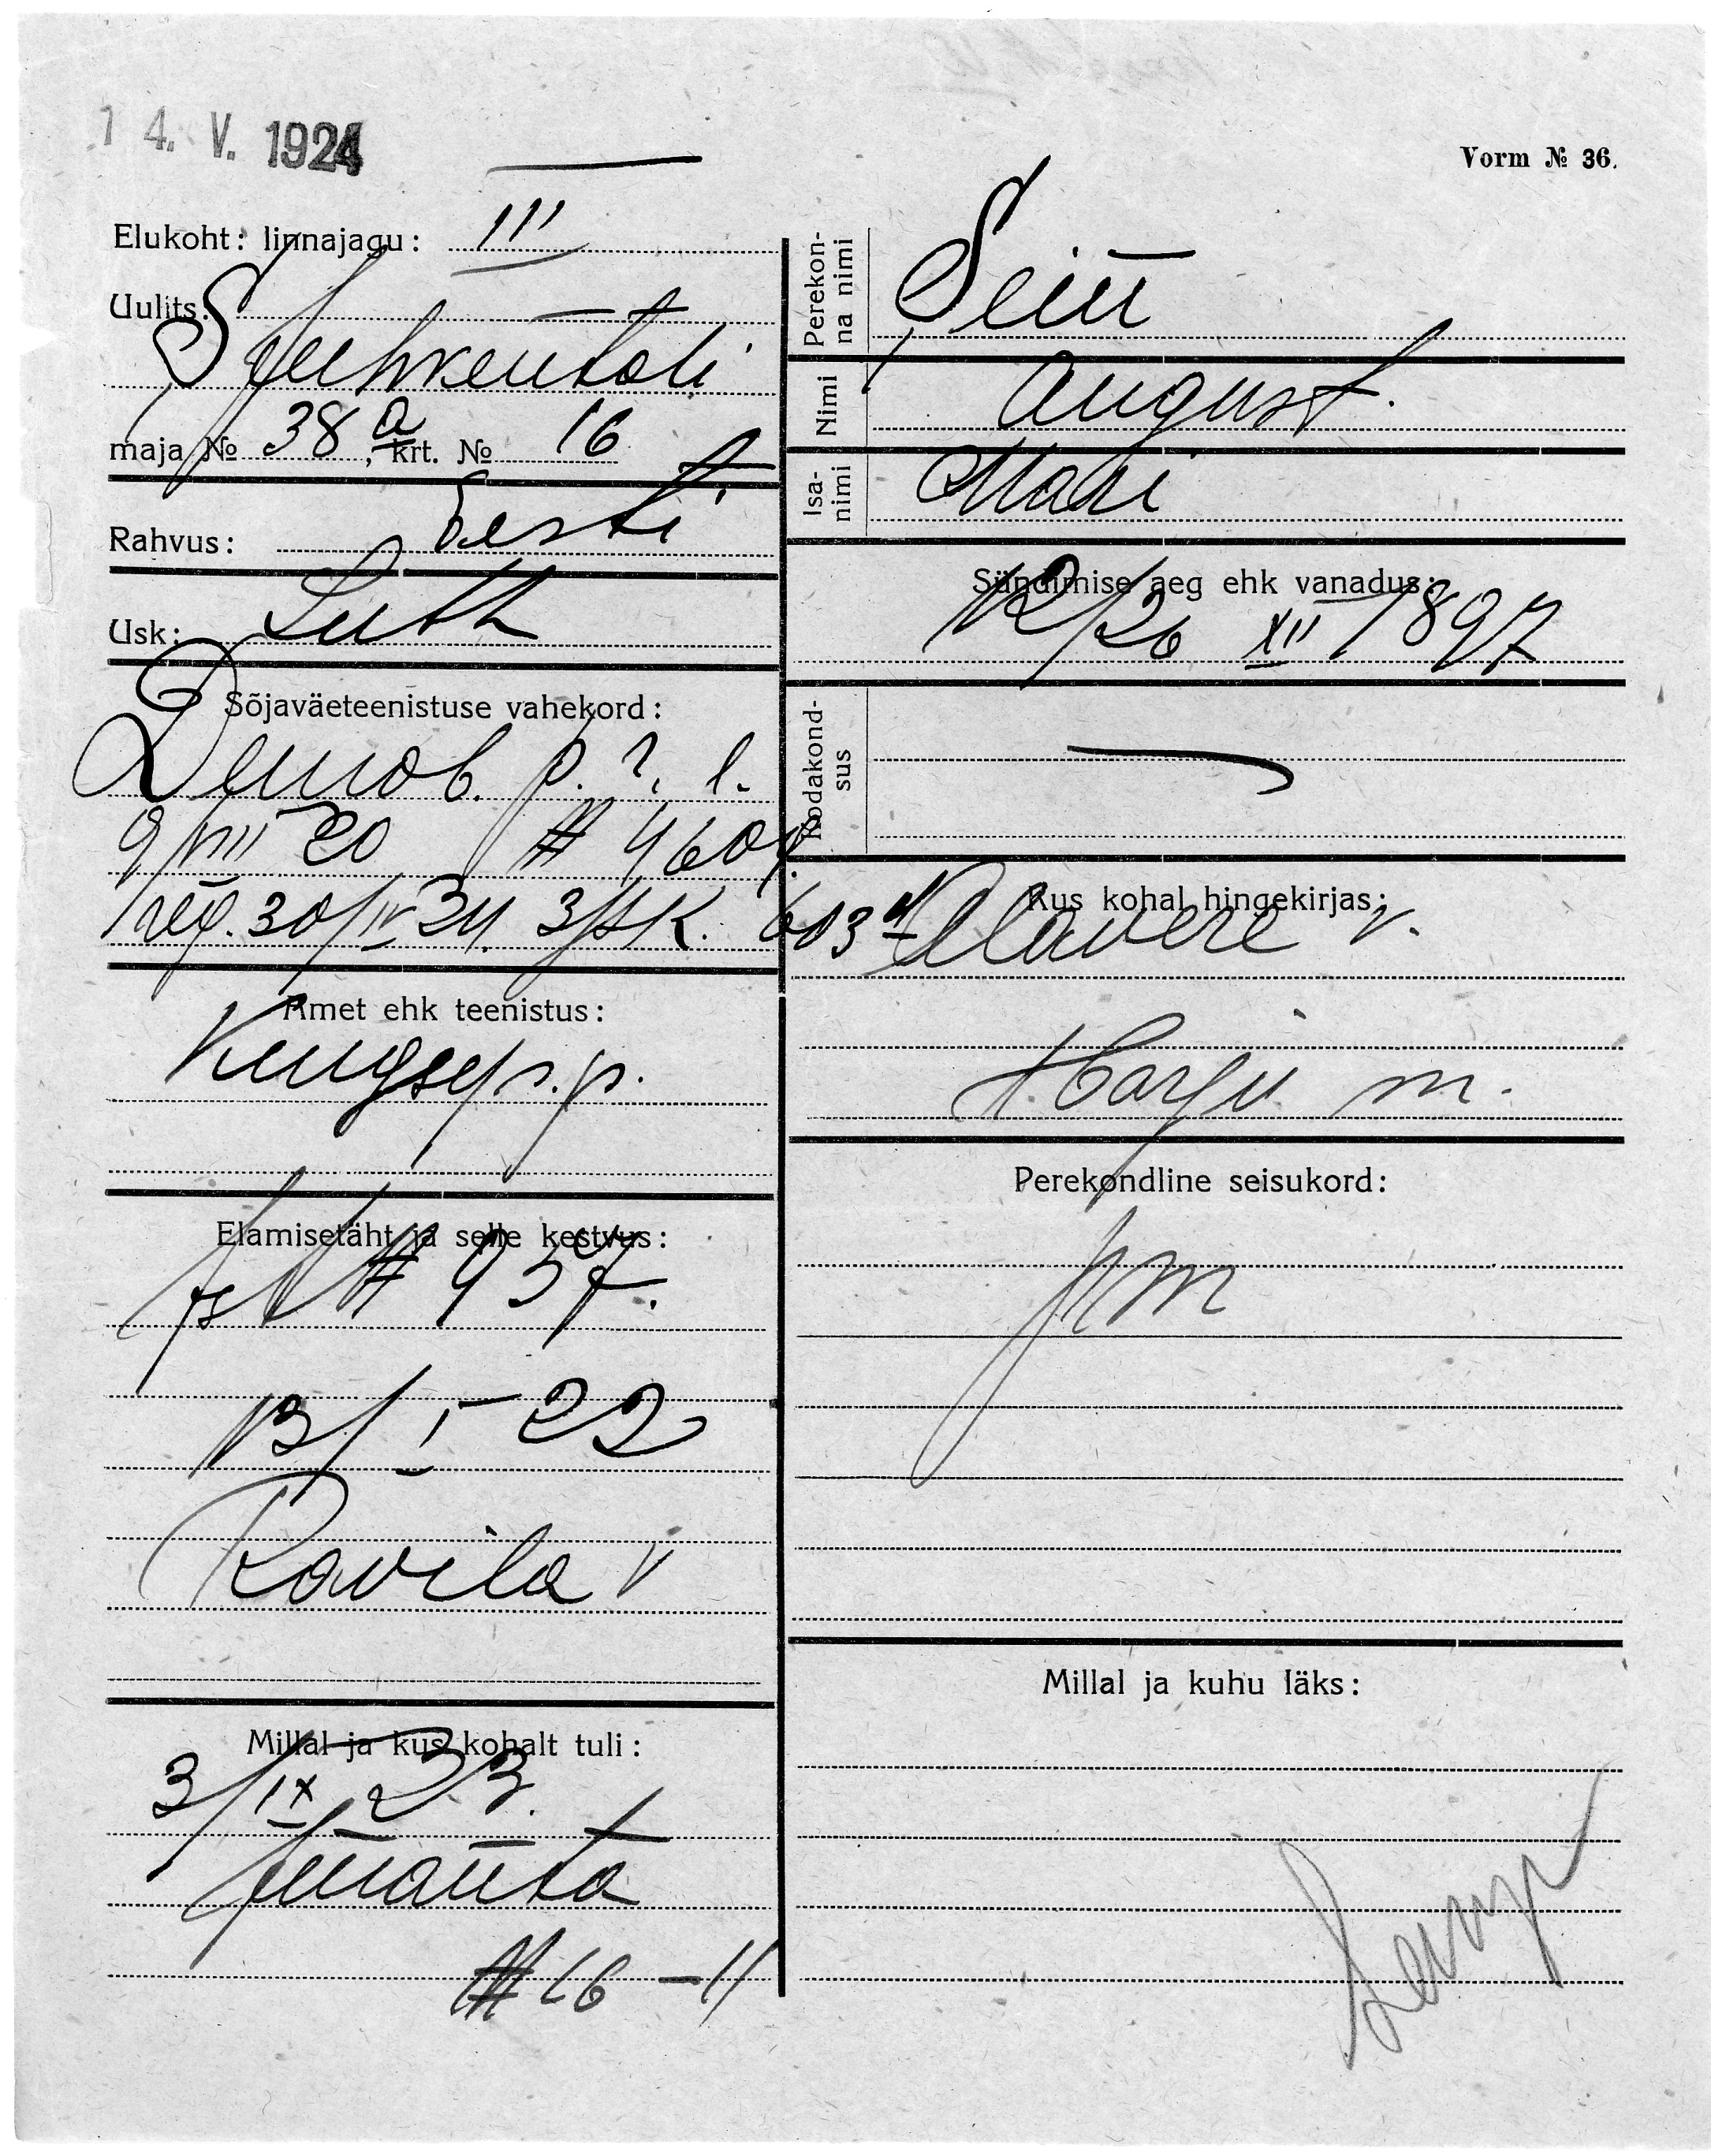 14. V. 1924
Vorm № 36.
Elukoht: linnajagu: III
Uulits:
maja № 38 a, krt. № 16
Rahvus: Eesti
Usk: Luth
Sõjaväeteenistuse vahekord:
Demob. p. r. l.
9/VIII 20 № 4604.
reg. 30/IV 24. 3/jsk. 603
Amet ehk teenistus:
Kingsep. p.
Elamisetäht ja selle kestvus:
№ 957.
13/I – 22
Ravila v
Millal ja kus kohalt tuli:
3/IX 23.
№ 16 – 11
Perekonna nimi
Nimi August.
Isanimi Mari
Sündimise aeg ehk vanadus:
12/26 XII 1897
Kodakondsus —
Kus kohal hingekirjas:
Alavere v.
Harju m.
Perekondline seisukord:
pm
Millal ja kuhu läks: